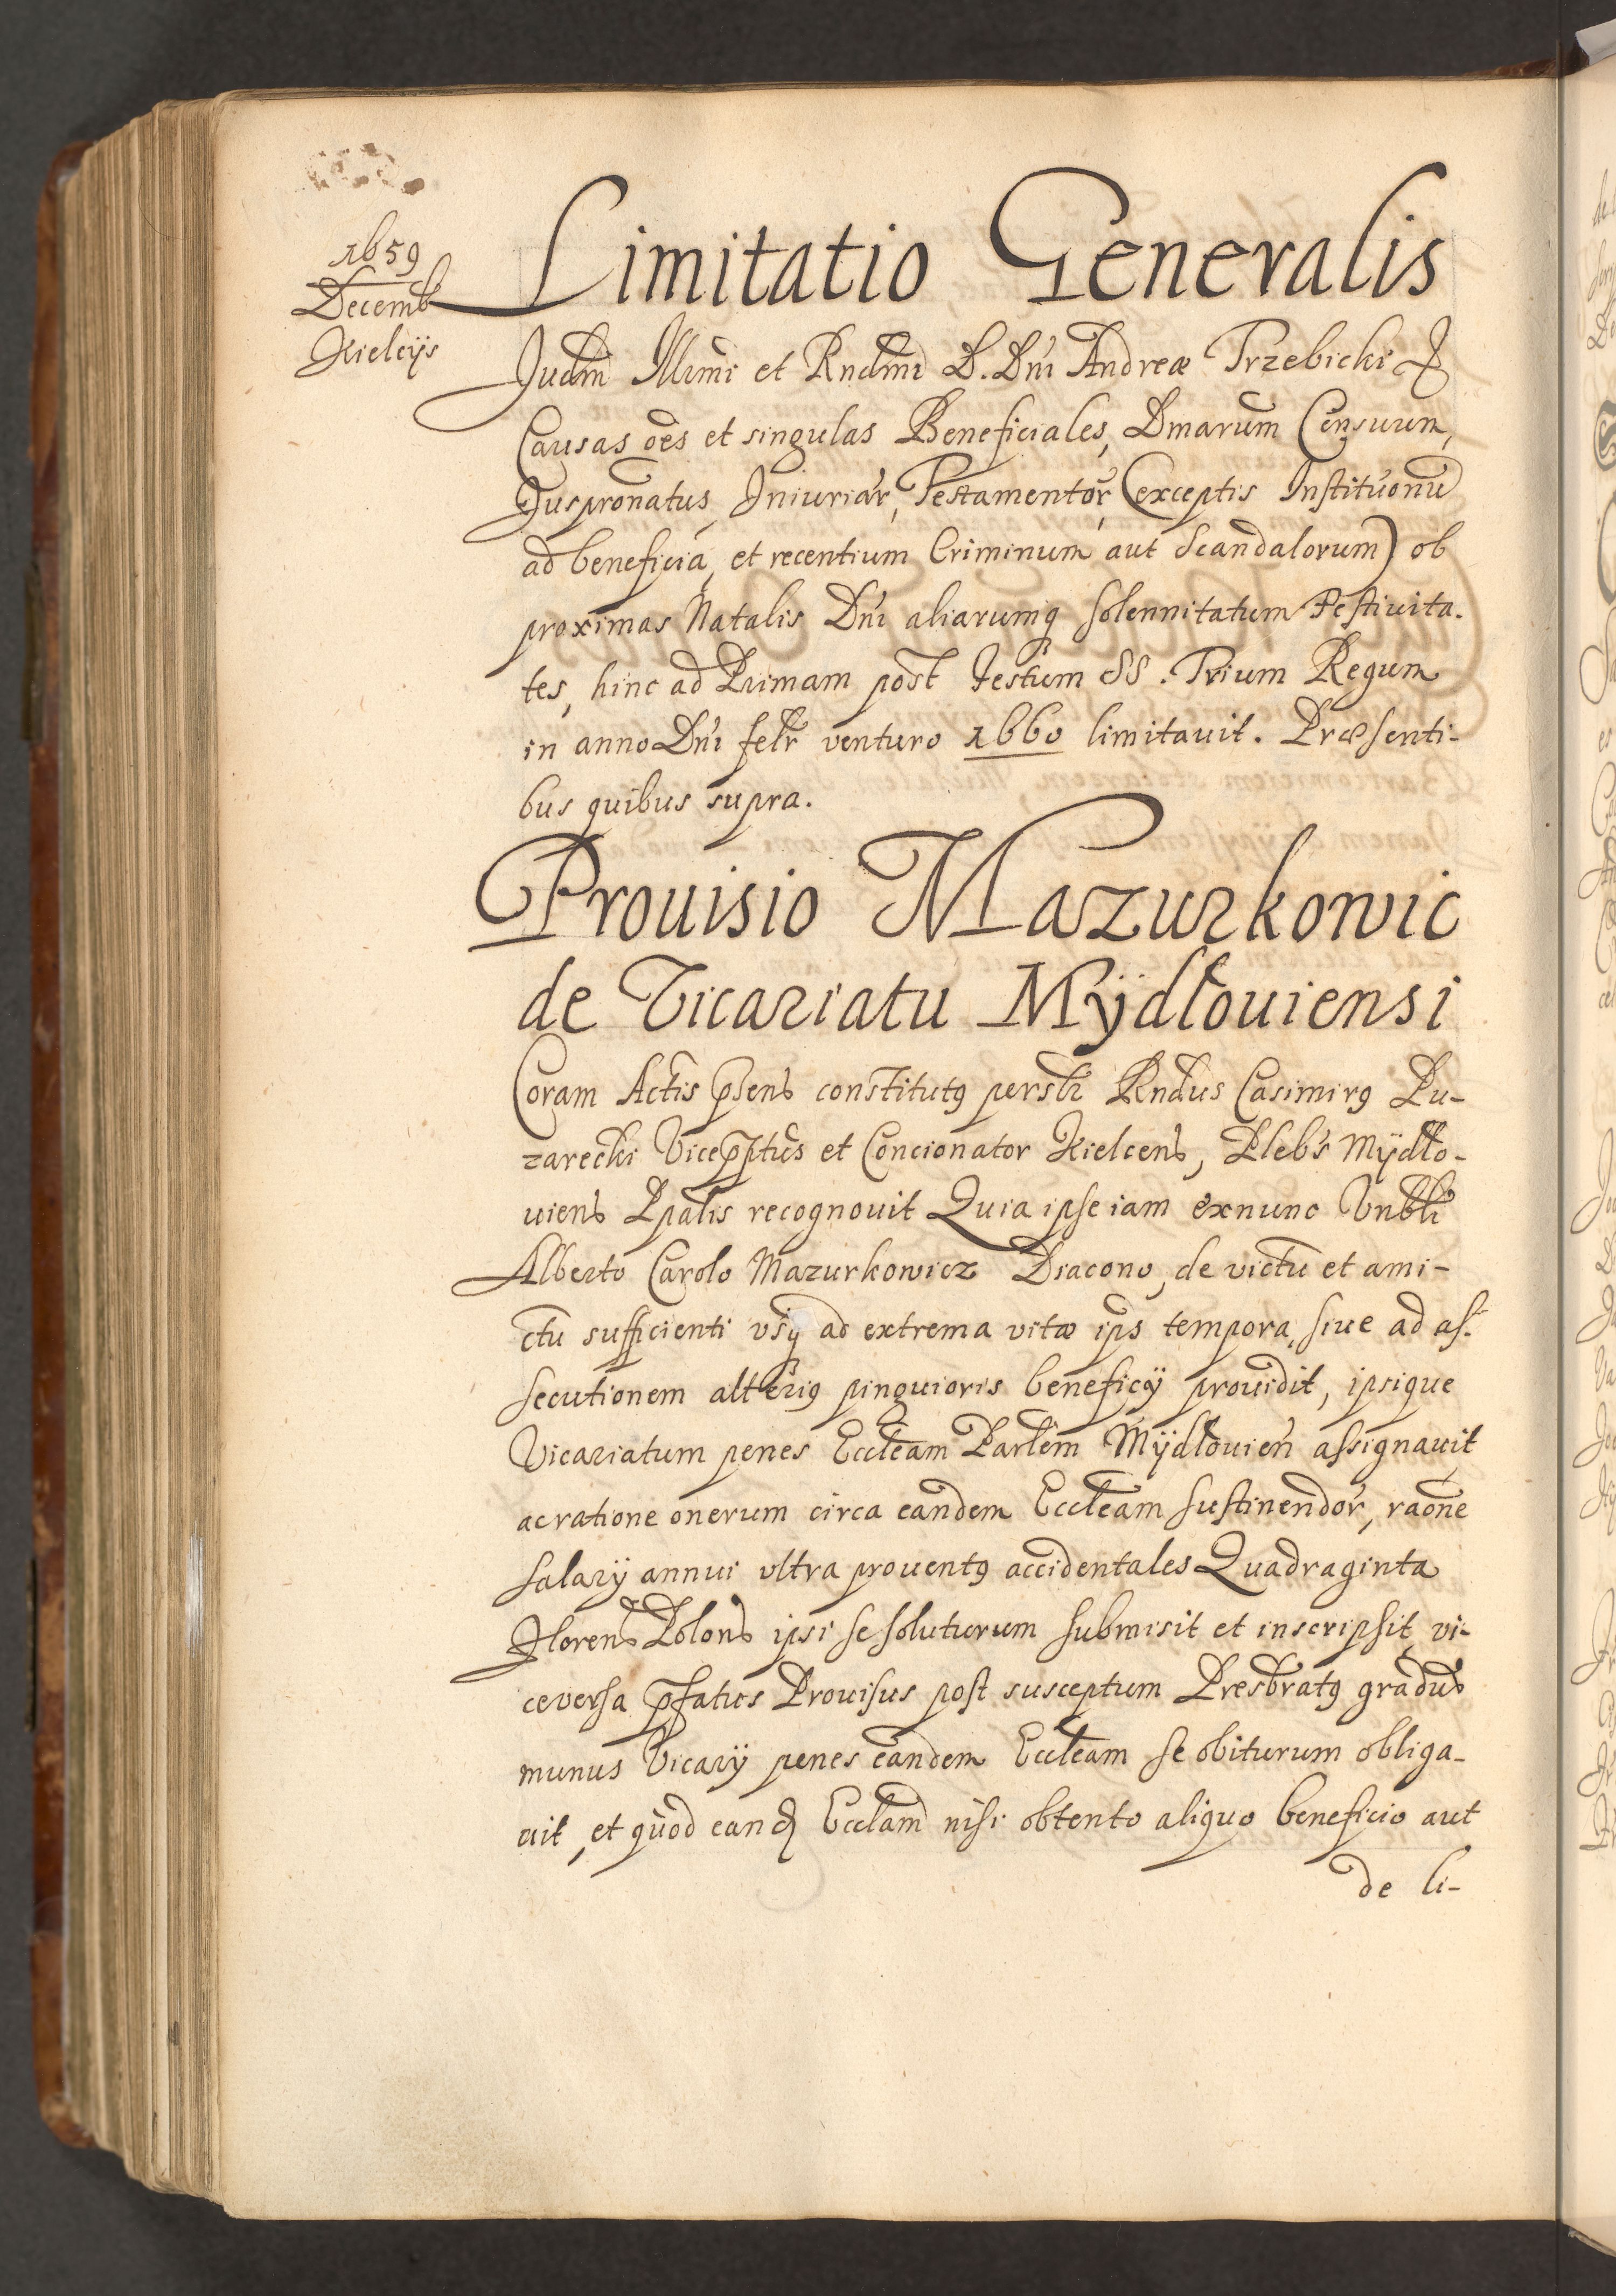 1659
Decemb
Kielcijs
Limitatio Generalis
Judm Illimi et Rndmi D. Dni Andreæ Trzebicki &
Causas oes et singulas Beneficiales, Dmarum Censuum,
Juspronatus, Iniuriar, Testamentor, (exceptis Institutonu
ad beneficia, et recentium Criminum aut Scandalorum) ob
proximas Natalis Dni aliarumq solennitatum Festiuita-
tes, hinc ad Primam post Festum SS. Trium Regum
in anno Dni felr venturo 1660 limitauit. Præsenti-
bus quibus supra.
Prouisio Mazurkowic
de Vicariatu Mÿdłouiensi
Coram Actis psens constitutq persolr Rndus Casimirq Pu-
zarecki Vicepptus et Concionator Kielcens, Plebs Mÿdło-
uiens Ppalis recognouit Quia ipse iam exnunc Vnbli
Alberto Carolo Mazurkowicz Diacono, de victu et ami-
ctu sufficienti vsq ad extrema vitæ ips tempora, siue ad as-
secutionem alteriq pinguioris beneficij prouidit, ipsique
Vicariatum penes Eccleam Parlem Mÿdłouien assignauit
ac ratione onerum circa eandem Eccleam sustinendor, raone
salarij annui vltra prouentq accidentales Quadraginta
Florens Polons ipsi se soluturum submisit et inscripsit, vi-
ceversa pfatus Prouisus post susceptum Presbratq gradus
munus Vicarij penes eandem Eccleam se obiturum obliga-
uit, et quod eand Ecclam nisi obtento aliquo beneficio aut
de li-